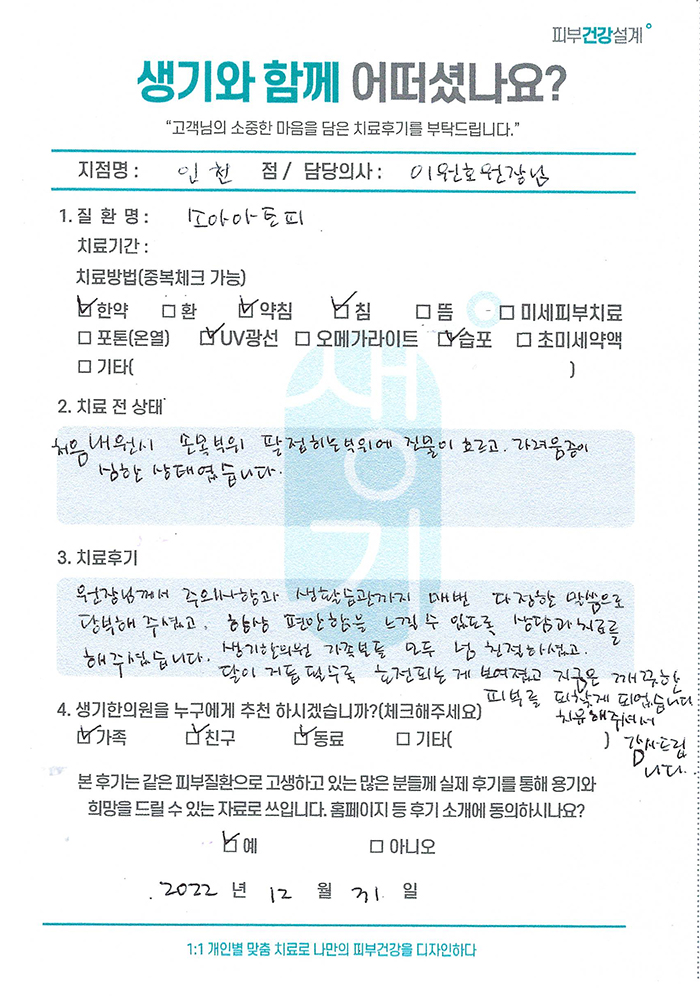 피부건강설계
생기와 함께 어떠셨나요?
“고객님의 소중한 마음을 담은 치료후기를 부탁드립니다.”
지점명 : 인천 점 / 담당의사 : 이원호원장님
1. 질 환 명 : 소아아토피
치료기간 :
치료방법(중복체크 가능)
☑한약 □환 ☑약침 ☑침 □뜸 □미세피부치료
□포톤(온열) ☑UV광선 □오메가라이트 ☑습포 □초미세약액
□기타( )
2. 치료 전 상태
처음 내원시 손목부위 팔접히는부위에 진물이 흐르고. 가려움증이
심한 상태였습니다.
생기
3. 치료후기
원장님께서 주의사항과 생활습관까지 매번 다정한 말씀으로
당부해 주셨고, 항상 편안함을 느낄 수 있도록 상담과 치료를
해주셨습니다. 생기한의원 가족분들 모두 넘 친절하셨고.
달이 거듭될수록 호전되는게 보여졌고 지금은 깨끗한
피부를 되찾게 되었습니다
치유해주셔서
감사드립
니다.
4. 생기한의원을 누구에게 추천 하시겠습니까?(체크해주세요)
☑가족 ☑친구 ☑동료 □기타( )
본 후기는 같은 피부질환으로 고생하고 있는 많은 분들께 실제 후기를 통해 용기와
희망을 드릴 수 있는 자료로 쓰입니다. 홈페이지 등 후기 소개에 동의하시나요?
☑예 □아니오
2022 년 12 월 31 일
1:1 개인별 맞춤 치료로 나만의 피부건강을 디자인하다